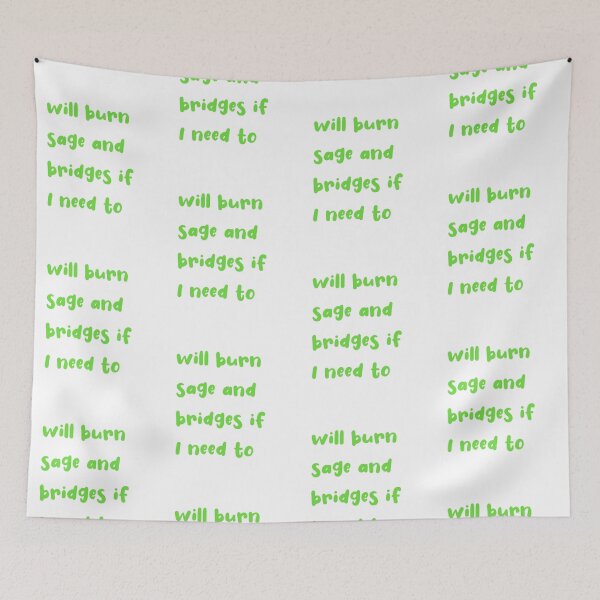 will burn
sage and
bridges if
I need to
will burn
sage and
bridges if
I need to
will burn
sage and
bridges if
sage and
bridges if
I need to
will burn
sage and
bridges if
I need to
will burn
sage and
bridges if
I need to
will burn
will burn
sage and
bridges if
I need to
will burn
sage and
bridges if
I need to
will burn
sage and
bridges if
sage and
bridges if
I need to
will burn
sage and
bridges if
I need to
will burn
sage and
bridges if
I need to
will burn